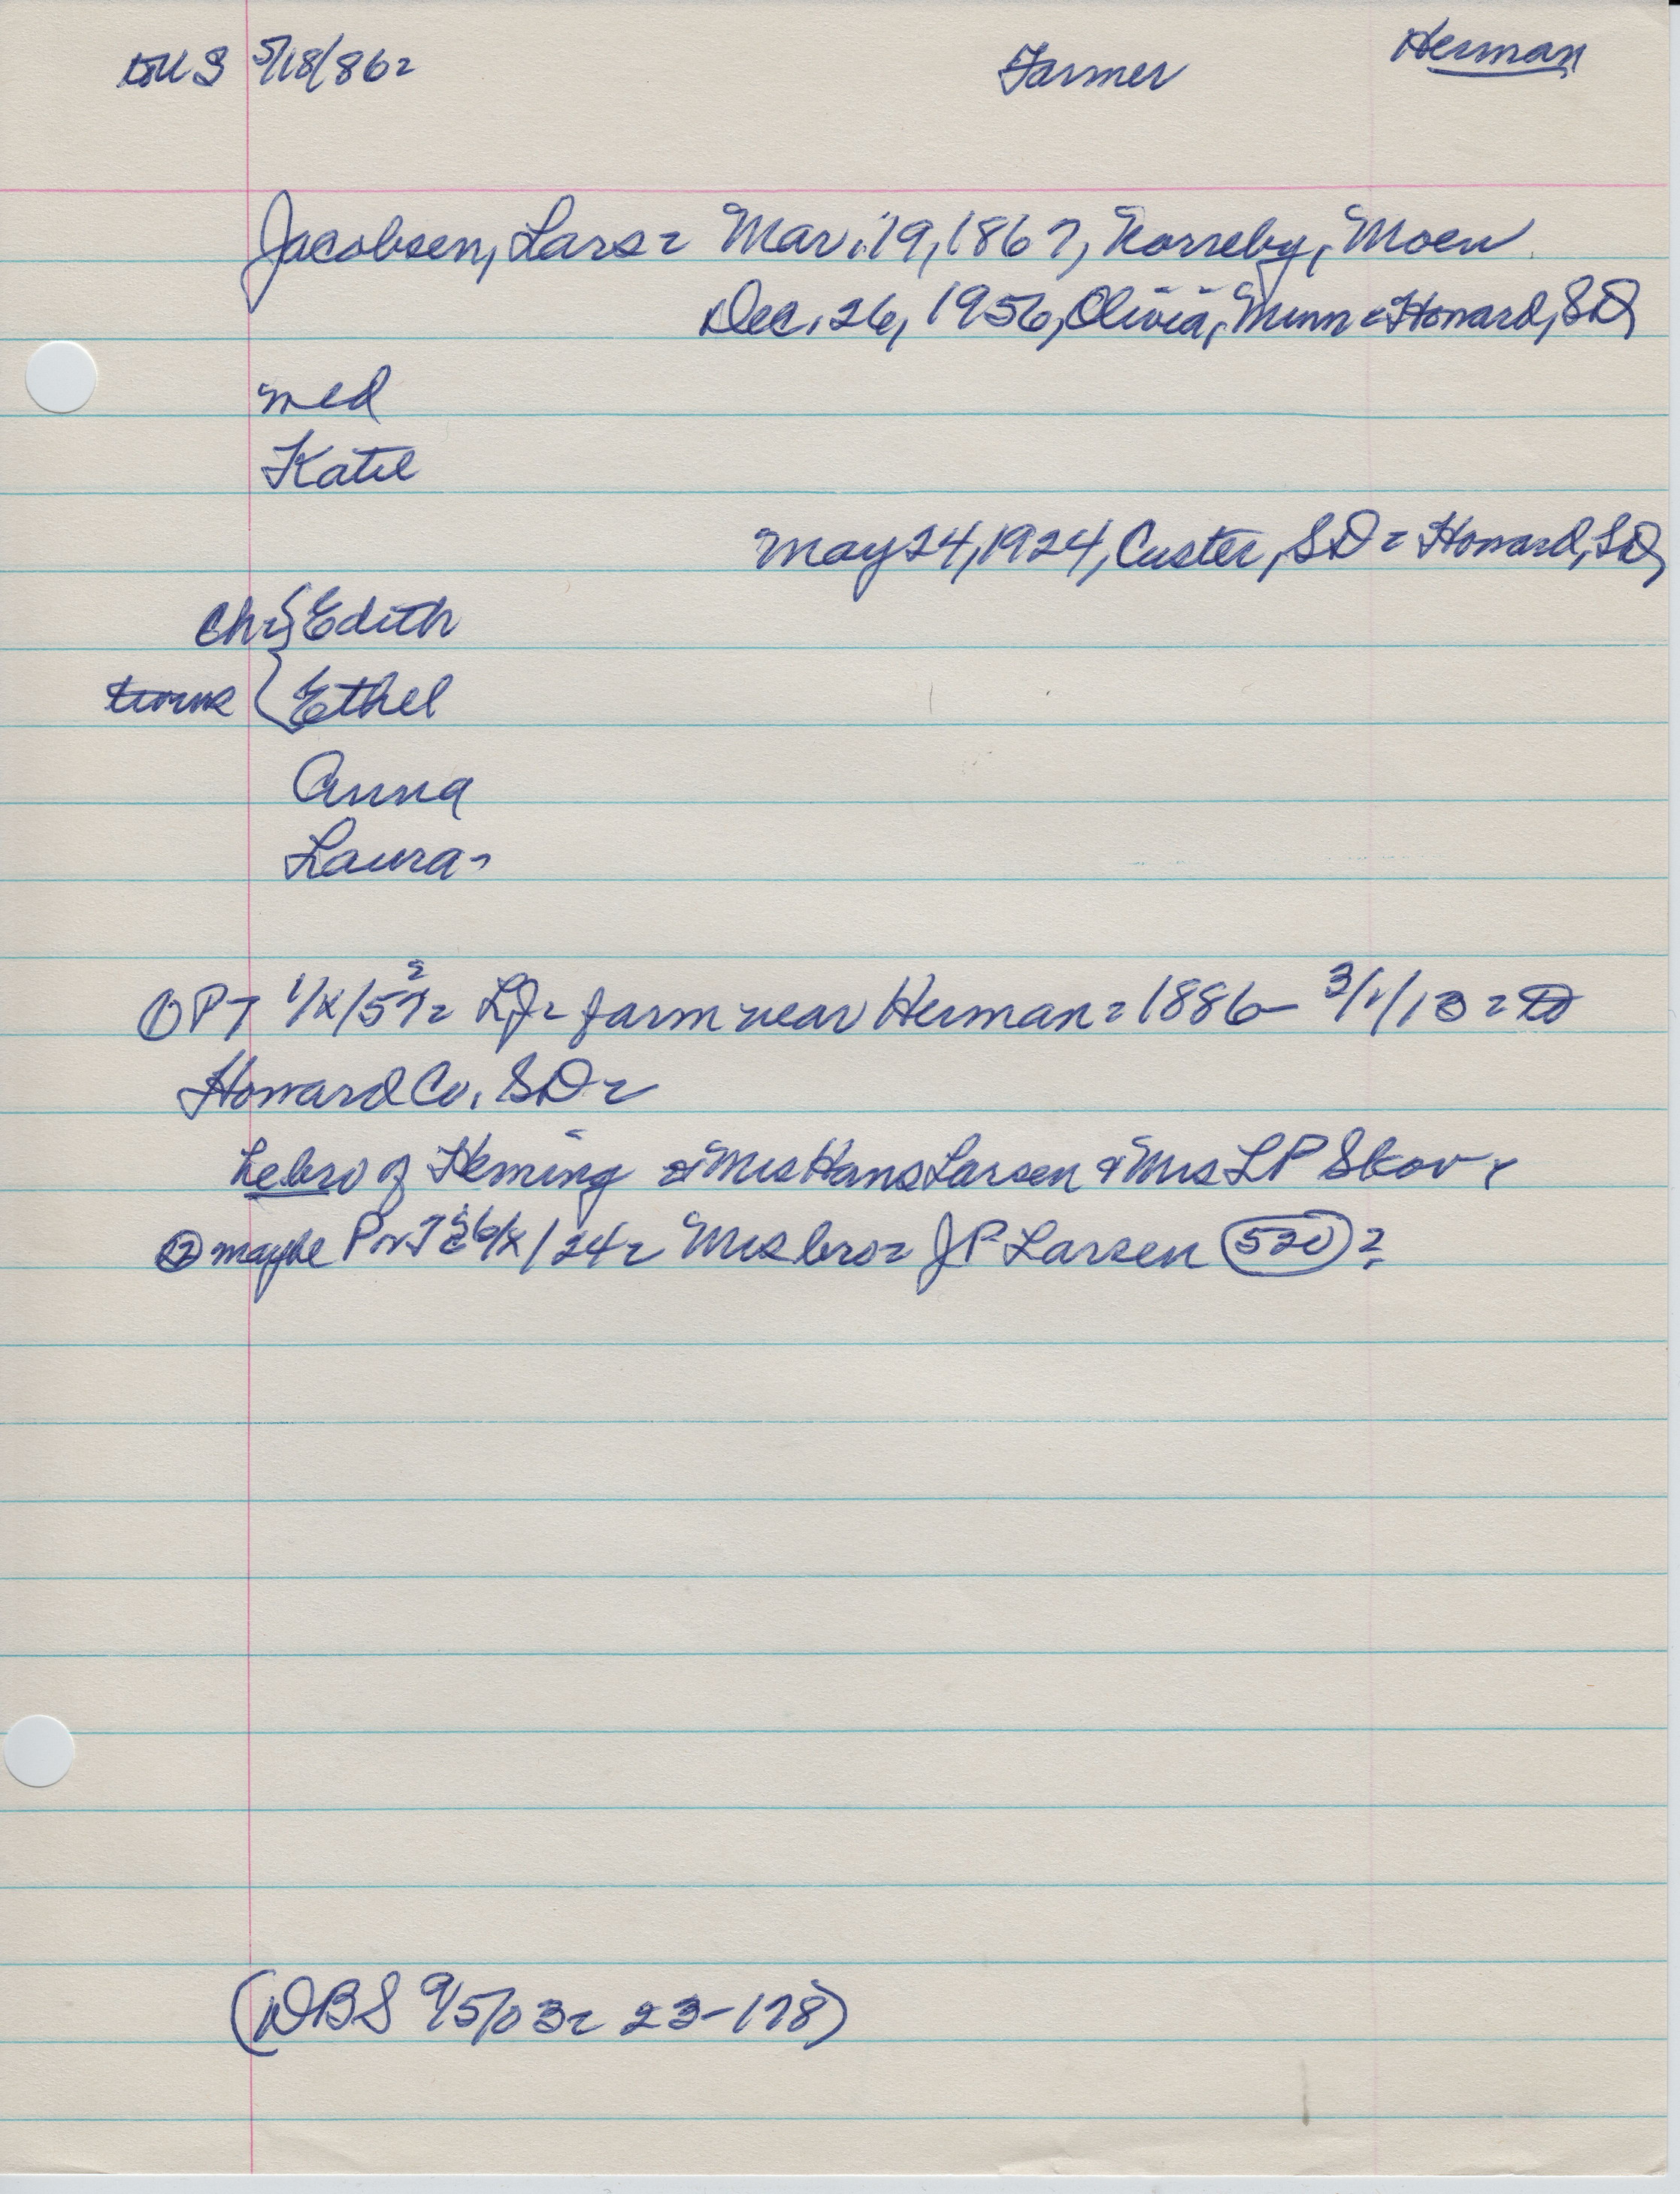 DMS 5/18/86= Farmer Herman
Jacobsen, Lars= Mar. 19, 1867, Norreby, Moen
Dec. 26, 1956, Olivia, Minn = Howard, SD
med
Katie
May 24, 1924, Custer, SD = Howard, SD
Ch= { Edith
{ Ethel
Anna
Laura-
① P7 1/x/57= LJ= farm near Herman = 1886- 3/1/13 =
Howard Co. SD=
Le bro of Fleming & Mrs Hans Larsen & Mrs LP Skov
② maybe 6/x/24= Mrs bro= JP Larsen (520)?
(DBS 9/5/03= 23-178)